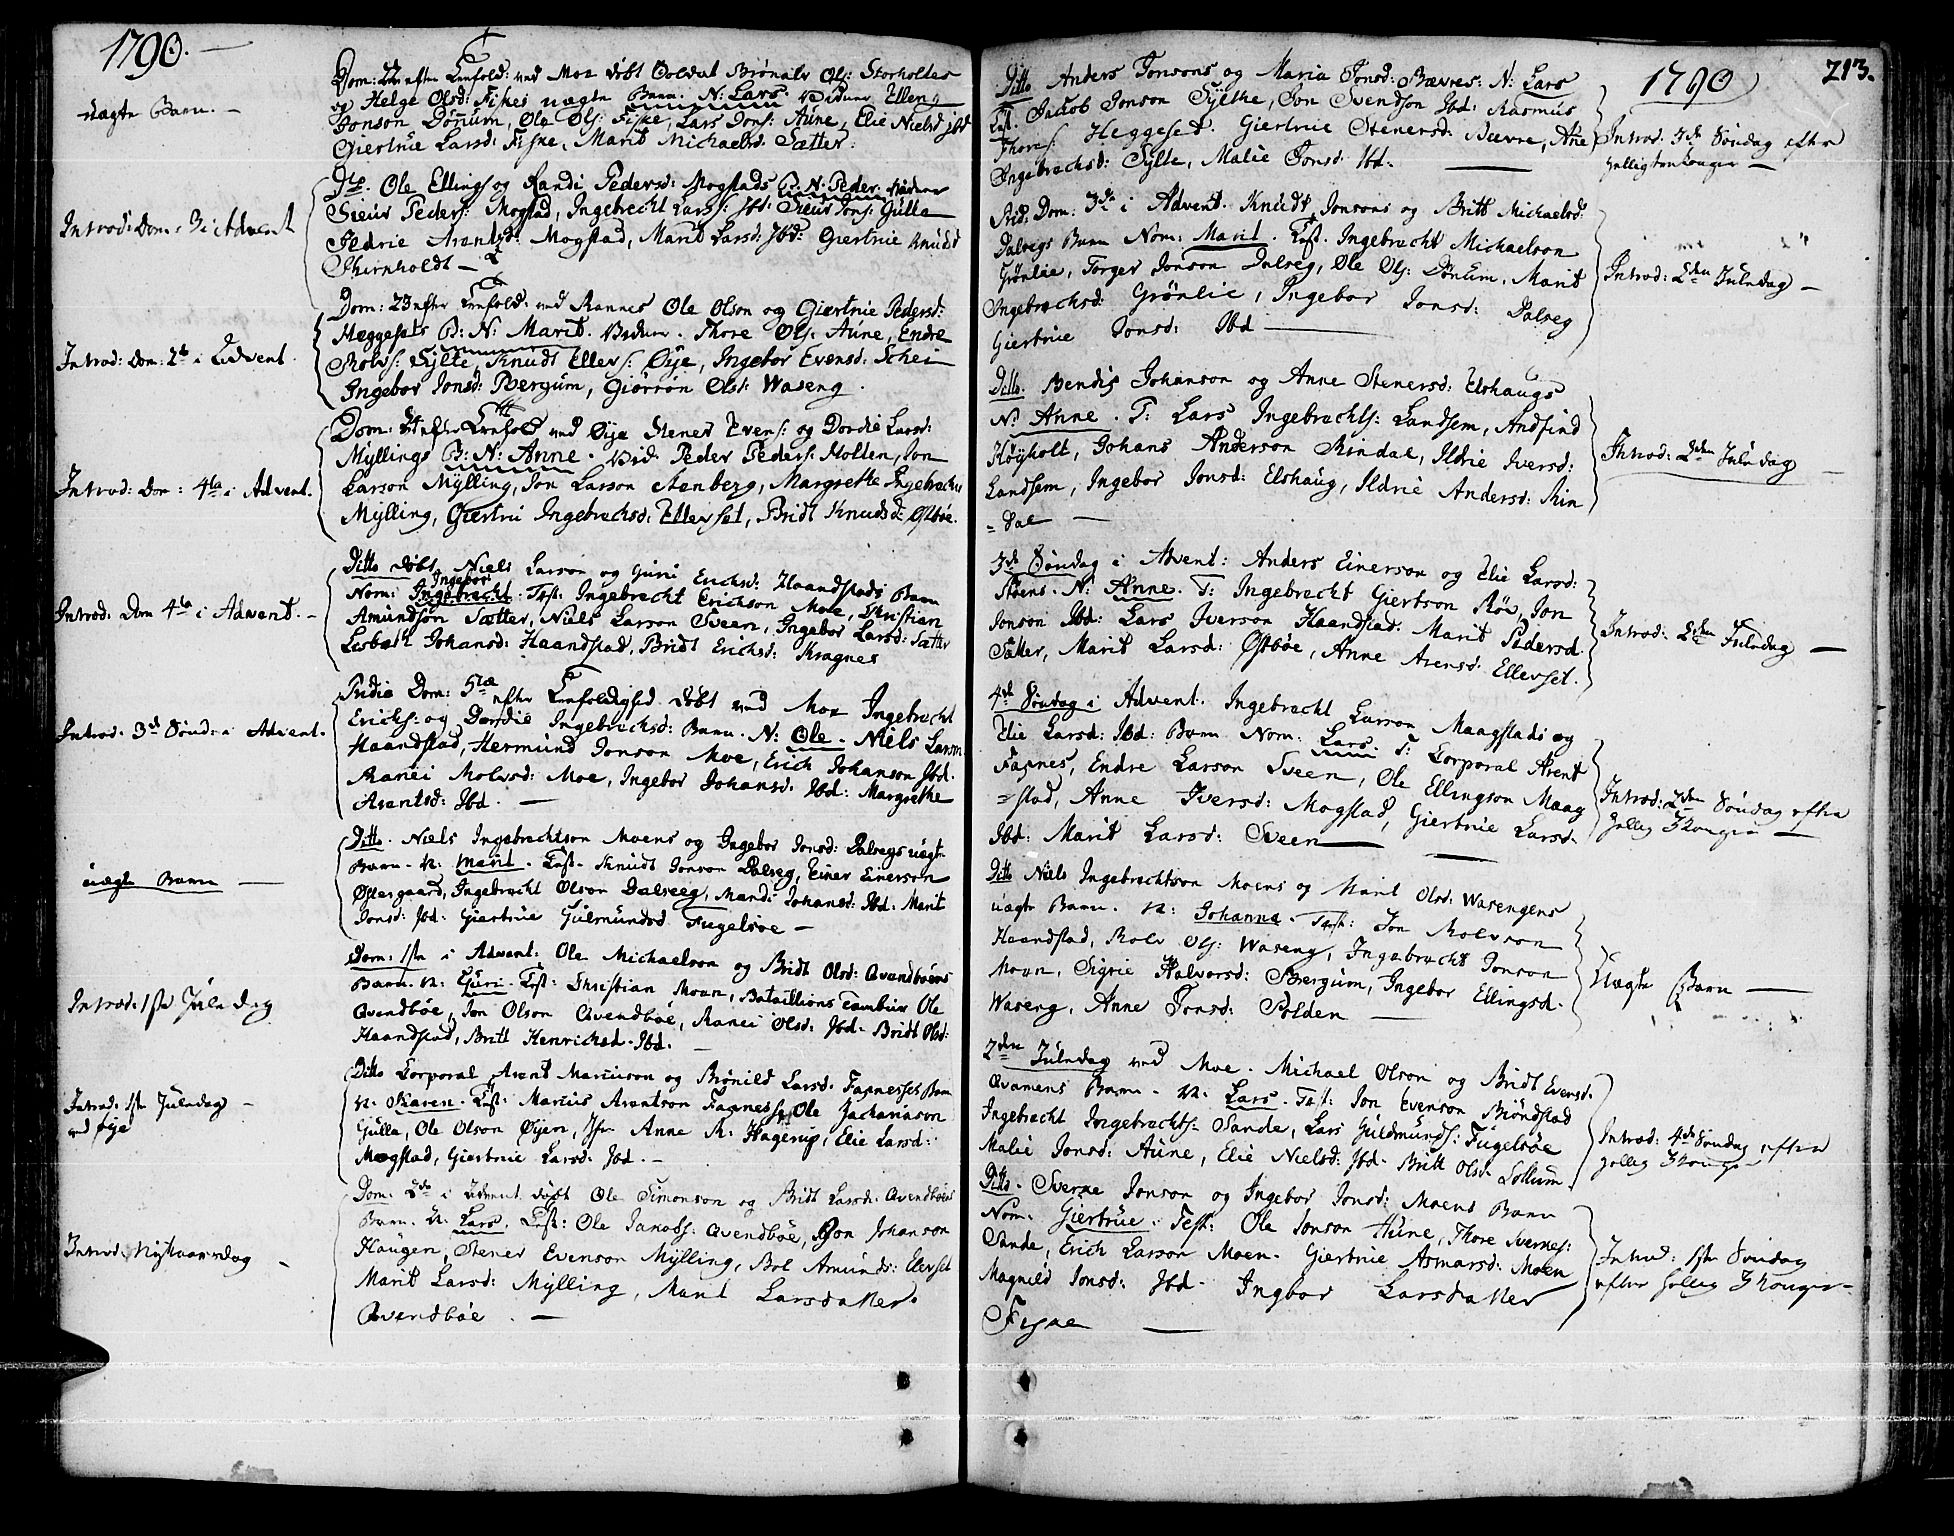 1790.
uægte Barn. -
Dom: 22 efter Trefold: ved Moe døbt Goldut Brønild Ols: Storholtes
og Helge Olsd: Fiskes uægte Barn. N: Lars. Vidner Ellen
Jonson Dønnum, Ole Ols: Fiske, Lars Jons: Aune, Elie Nielsd Ibd
Giertrue Larsd: Fiske, Marit Michaelsd. Sætter.
Introd: Dom: 3 i Advent
Dto. Ole Ellings og Randi Pedersd: Mogstads B. N. Peder. Vidner
Sivur Peders: Mogstad, Ingebrecht Lars: Ibd: Sivur Jons: Gulla
Sedrie Arentsd: Mogstad, Marit Larsd: Ibd: Giertrue Knudsd
Skirnholdt -
Introd: Dom: 2de i Advent.
Dom: 23 efter Trefold: ved Rannes Ole Olson og Giertrue Pedersd:
Heggesets B: N: Marit. Vidner. Thore Ols: Aune, Endre
Rolvs: Sylte, Knudt Ellevs: Øye, Ingebor Evensd: Schei
Ingebor Jonsd: Bergum, Giorron Olsd: Waseng.
Introd: Dom: 4de i Advent.
Dom: 24 efter Trefold ved Øye Stener Evens: og Dordie Larsd:
Myllings B: N: Anne. Vid: Peder Peders: Holten, Jon
Larson Mylling, Jon Larson Stenberg, Margrethe Ingebrechts
Mylling, Giertru Ingebrechsd: Ellevset, Bridt Knudsd: Østbøe.
Introd: Dom 4de i Advent. -
Ditto døbt Niels Larson og Guri Erichsd: Haandstads Barn
Ingebor
Nom: Ingebrecht. Test: Ingebrecht Erichson Moe, Christian
Amundson Sætter, Niels Larson Sveen, Ingebor Larsd: Sætter
Lisbeth Johansd: Haandstad, Bridt Erichsd: Kragnes
Introd: 3de Sønd: i Advent.
Fredie Dom: 5te efter Trefoldighed døbt ved Moe Ingebrecht
Erichs: og Dordie Ingebrechsd: Barn. N: Ole. Niels Larson
Haandstad, Hermund Jonson Moe, Erich Johanson Ibd.
Ranei Rolvsd: Moe, Ingebor Johansd. Ibd: Margrethe
Arantsd: Ibd. -
uægte Barn -
Ditto. Niels Ingebrechtson Moens og Ingebor Jonsd: Dalvegs uægte
Barn. N: Marit. Test. Knudt Jonson Dalveg, Einer Einerson
Østergaard, Ingebrecht Olson Dalveeg, Mandi Johansd: Ibd. Marit
Jonsd: Ibd: Giertrue Gulmundsd Fugelsøe -
Introd: 1ste Juledag
Dom: 1ste i Advent: Ole Michaelson og Bridt Olsd: Qvendbøens
Barn. N: Guri. Test: Christian Moen, Bataillions Tambur Ole
Qvendbøe, Jon Olson Qvendbøe, Ranei Olsd: Ibd. Bridt Olsd:
Haandstad, Britt Henrichsd. Ibd. -
Introd: 1ste Juledag -
ved Øye
Ditto Corporal Arent Marcuson og Brønild Larsd. Fagnesset Barn
N: Karen. Test: Marcus Arentson Fagness, Ole Zachariason
Gulla, Ole Olson Øyen, Jfr Anne M: Hagerup, Elie Larsd:
Mogstad, Giertrue Larsd: Ibd. -
Introd: Nytaarsdag -
Dom: 2de i Advent døbt Ole Simonson og Bridt Larsd: Qvendbøens
Barn. N: Lars. Test: Ole Jacobs: Qvendbøe, Jon Johanson
Haugen, Stener Evenson Mylling, Bol Amunds: Elevset
Marit Larsd: Mylling, Marit Larsdatter.
Qvendbøe. -
1790
213.
Ditto Anders Jonsons og Maria Jonsd: Bævres: N: Lars
Test. Jacob Jonson Sylthe, Jon Svendson Ibd: Rasmus
Thores: Heggeset. Giertrue Stenersd: Bævre, Ane
Ingebrechsd: Sylte, Malie Jonsd: Ibd. -
Introd: 3de Søndag efter
Helligtrekonger -
Frid: Dom: 3de i Advent. Knudt Jonsons og Britt Michaelsd:
Dalvegs Barn Nom: Marit. Test. Ingebrecht Michaelson
Grønlie, Torger Jonson Dalveg, Ole Ols: Dønum, Marit
Ingebrechsd: Grønlie, Ingebor Jonsd: Dalveg
Giertrue Jonsd: Ibd -
Introd: 2den Juledag -
Ditto. Bendix Johanson og Anne Stenersd: Elshaugs
N: Anne. T: Lars Ingebrechts: Landsem, Andfind
Høyholt, Johans Anderson Rindal, Ildrie Iversd:
Landsem, Ingebor Jonsd: Elshaug, Ildrie Andersd: Rin
=dal -
Introd: 2den Juledag -
3de Søndag i Advent: Anders Einerson og Elie Larsd:
Røens. N: Anne. T: Ingebrecht Giertson Røe, Jon
Jonson Ibd: Lars Iverson Haandstad. Marit Pedersd.
Sætter, Marit Larsd: Østbøe, Anne Arensd: Ellevset.
Introd: 2den Juledag -
4de Søndag i Advent. Ingebrecht Larson Maagstads og
Elie Larsd: Ibd: Barn Nom: Lars. T: Corporal Arent
Fagnes, Endre Larson Sveen, Ole Ellingson Maag
=stad, Anne Iversd: Mogstad, Giertrue Larsd.
Ibd: Marit Larsd: Sveen -
Introd: 2den Søndag efter
Hellig 3 Konger -
Ditto Niels Ingebrechtson Moens og Marit Olsd: Wasengens
uægte Barn. N: Johanna. Test: Jon Rolvson
Haandstad, Rolv Ols: Waseng, Ingebrecht Jonson
Moen, Sigrie Halvorsd: Bergum, Ingebor Ellingsd.
Waseng, Anne Jonsd: Polden -
Uægte Barn -
2den Juledag ved Moe. Michael Olson og Bridt Evensd:
Qvamens Barn. N: Lars. Test: Jon Evenson Brøndstad
Ingebrecht Ingebrechts: Sande, Lars Guldmunds: Fugelsøe
Malie Jonsd: Aune, Elie Nielsd: Ibd. Britt Olsd. Sollium.
Introd: 4de Søndag efter
Hellig 3 Konger
Ditto. Sverke Jonson og Ingebor Jonsd: Moens Barn
Nom. Giertrue. Test: Ole Jonson Hune, Thore Svernes:
Sande, Erich Larson Moen. Giertrue Asmarsd: Moen
Magnild Jonsd: Ibd. Ingbor Larsdatter
Fiske -
Introd: 1ste Søndag
efter Hellig 3 Konger -